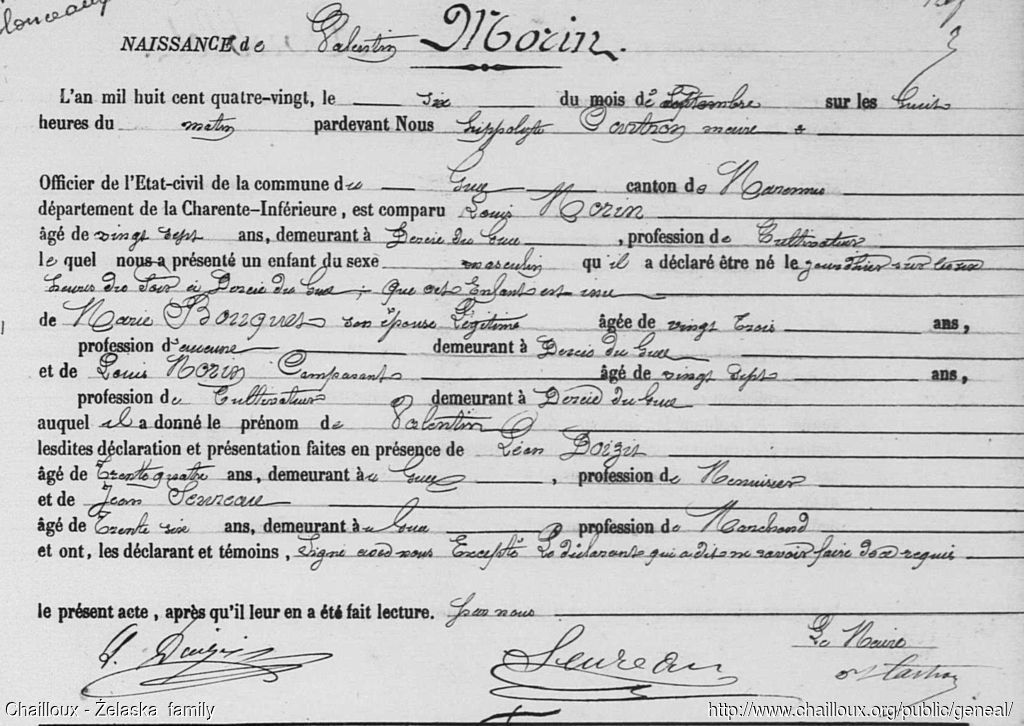 NAISSANCE de Valentin Morin.
L'an mil huit cent quatre-vingt, le six du mois de Septembre sur les huit
heures du matin pardevant Nous hippolyte maire
Officier de l'Etat-civil de la commune du Gua canton de Marennes
département de la Charente-Inférieure, est comparu Louis Morin
âgé de vingt sept ans, demeurant à Dercie du Gua, profession de Cultivateur
le quel nous a présenté un enfant du sexe masculin qu'il a déclaré être né le jourdhier sur
heures du Soir à Dercie du Gua; que cet Enfant est issu
de Marie Bouquet son épouse Légitime âgée de vingt trois ans,
profession d'aucune demeurant à Dercie du Gua
et de Louis Morin Comparant âgé de vingt sept ans,
profession de Cultivateur demeurant à Dercie du Gua
auquel il a donné le prénom de Valentin
lesdites déclaration et présentation faites en présence de Léon
âgé de Trente quatre ans, demeurant au Gua, profession de Menuisier
et de Jean Seureau
âgé de Trente six ans, demeurant au Gua profession de Marchand
et ont, les déclarant et témoins, Signé avec nous Excepté Le déclarant qui a dit ne savoir faire de ce requis
le présent acte, après qu'il leur en a été fait lecture. par nous
Le Maire
Seureau
Chailloux - Želaska family
http://www.chailloux.org/public/geneal/